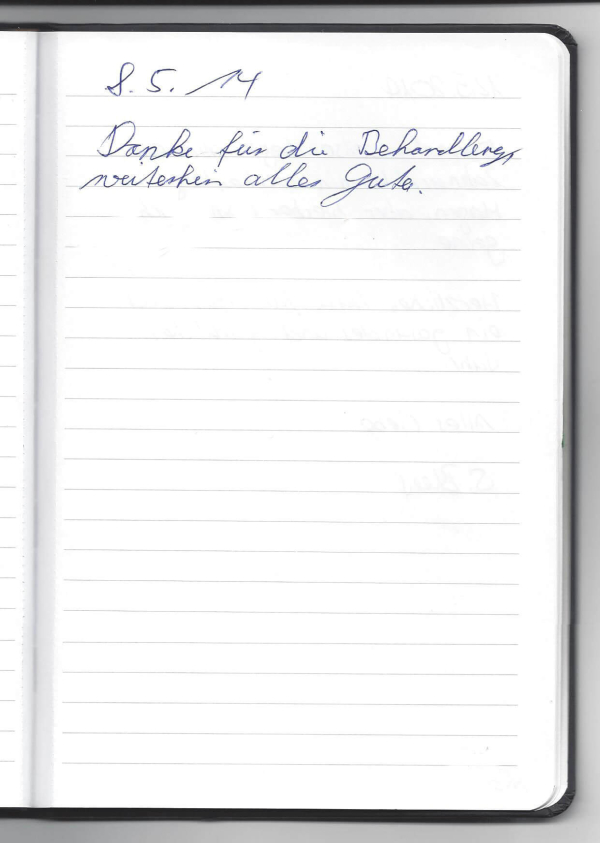 8. 5. 14
Danke für die Behandlung,
weiterhin alles Gute.